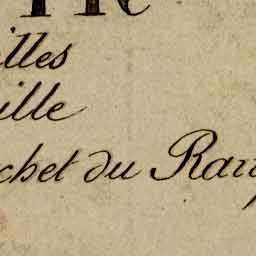 illes
ille
chet du Rau